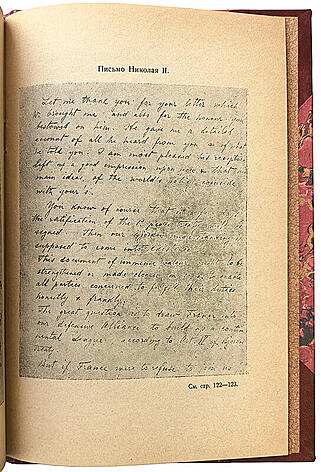 Письмо Николая II.
Let me thank you for your letter which
brought me, and also for the honour you
bestowed on him. He gave me a detailed
account of all he heard from you and of what
he told you. I am most pleased his reception
left a good impression upon you & that
main ideas of the world's policy coincide
with your's.
You know of course that
the ratification of the Peace treaty
signed. Then our
supposed to come into
This document of immense value to be
strengthened or made clearer to enable
all parties concerned to fulfil their duties
honestly & frankly.
The great question is to draw France into
our defensive Alliance to build up a conti-
nental League, according to Art. II of Bjoerkoe
treaty.
But if France were to refuse to join us
См. стр. 122—123.